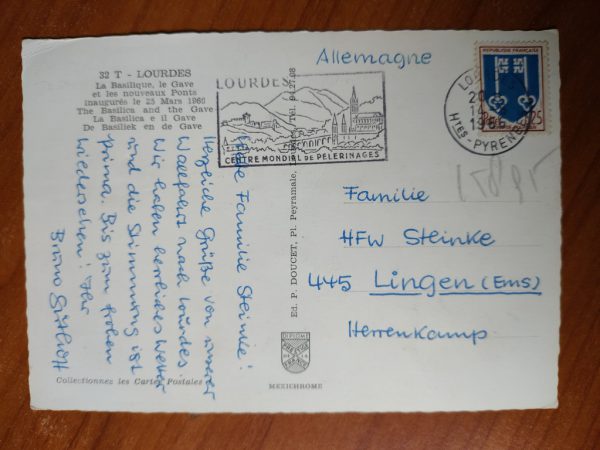 32 T - LOURDES
La Basilique, le Gave
et les nouveaux Ponts
inaugurés le 25 Mars 1960
The Basilica and the Gave
La Basilica e il Gave
De Basiliek en de Gave
LOURDES
CENTRE MONDIAL DE PÈLERINAGES
Allemagne
REPUBLIQUE FRANÇAISE
0,25
1966
Htes-PYRENEES
Liebe Familie Steinke!
Herzliche Grüße von unserer
Wallfahrt nach Lourdes.
Wir haben herrliches Wetter
und die Stimmung ist
prima. Bis zum frohen
Wiedersehen! Ihr
Bruno
Ed. P. DOUCET, Pl. Peyramale,
Familie
HFW Steinke
445 Lingen (Ems)
Herrenkamp
PRESTIGE
FRANCE
MEXICHROME
Collectionnez les Cartes Postales